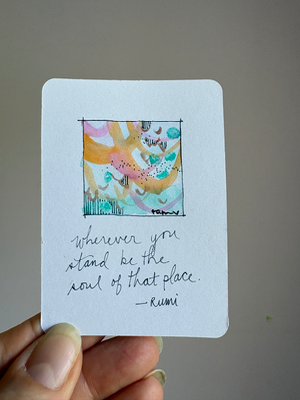 wherever you
stand be the
soul of that place.
—Rumi